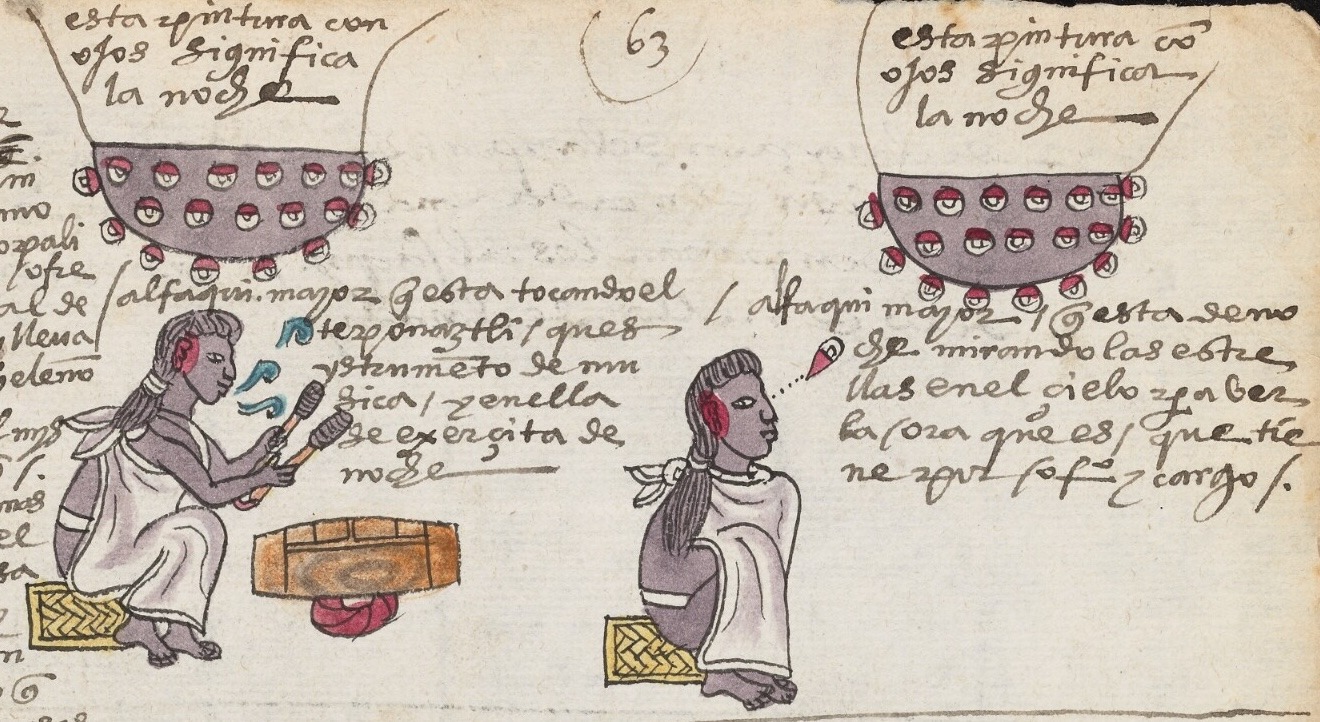 esta pintura con
ojos significa
la noche
63
esta pintura cō
ojos significa
la noche
alfaqui mayor q̄ esta tocando el
teponaztli / ques
ystrumēto de mu
sica / y en ella
se exerçita de
noche
/ alfaqui mayor / q̄ esta de no
che mirando las estre
llas en el cielo pa ver
la ora que es / que tie
ne por / ofiº y cargo /.
opali
ofre
al de
lleva
el